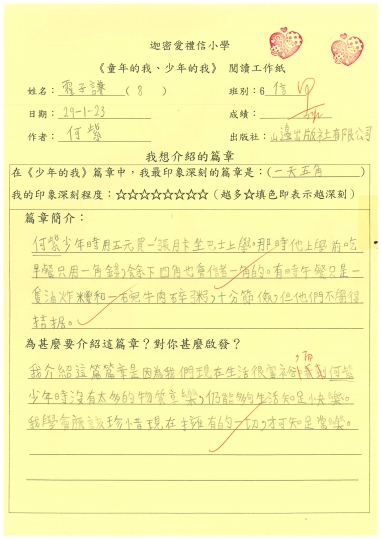 迦密愛禮信小學
《童年的我、少年的我》 閱讀工作紙
姓名：霍子謙 ( 8 ) 班別：6 信
日期：29-1-23 成績：甲
作者：何紫 出版社：山邊出版社有限公司
我想介紹的篇章
在《少年的我》篇章中，我最印象深刻的篇章是：(一天五角)
我的印象深刻程度：☆☆☆☆☆☆☆☆ (越多☆填色即表示越深刻)
篇章簡介：
何紫少年時用五元買一張月卡坐巴士上學。那時他上學前吃
早餐只用一角錢，餘下四角也會儲一角的。有時午餐只是一
隻油炸糭和一右宛牛肉碎粥，十分節儉，但他們不覺得
拮据。
為甚麼要介紹這篇章？對你甚麼啟發？
我介紹這篇篇章是因為我們現在生活很豐衣，而何紫
少年時沒有太多的物質享樂，仍能夠生活知足快樂。
我學會應該珍惜現在擁有的一切，才可知足常樂。